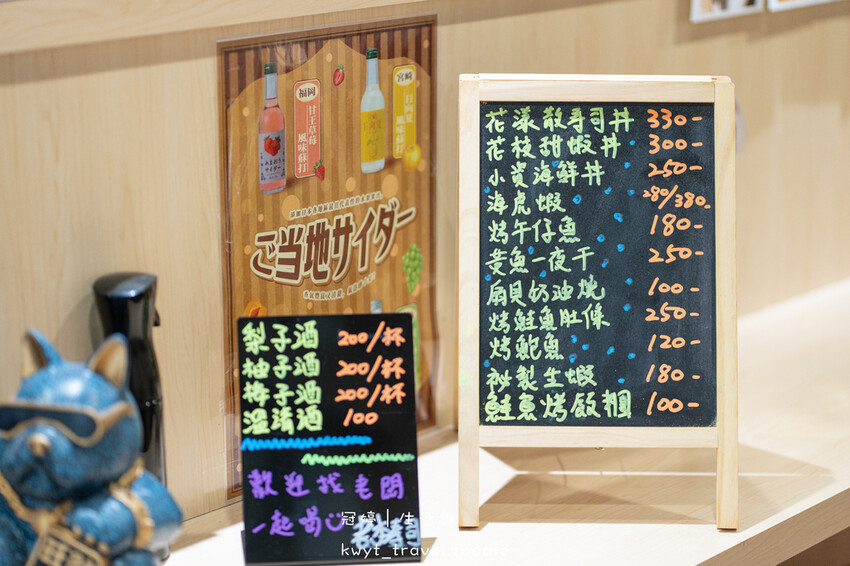 福岡
甘王草莓
風味蘇打
宮崎
日向夏
風味蘇打
ご当地サイダー
花漾散壽司丼 330-
花枝甜蝦丼 300-
小資海鮮丼 250-
海虎蝦 280/380-
烤午仔魚 180-
黃魚一夜干 250-
扇貝奶油燒 100-
烤鮭魚肚條 250-
烤鮑魚 120-
祕製生蝦 180-
鮭魚烤飯糰 100-
梨子酒 200/杯
柚子酒 200/杯
梅子酒 200/杯
溫清酒 100
歡迎找老闆
一起喝
冠婷｜生活
kwyt_travel